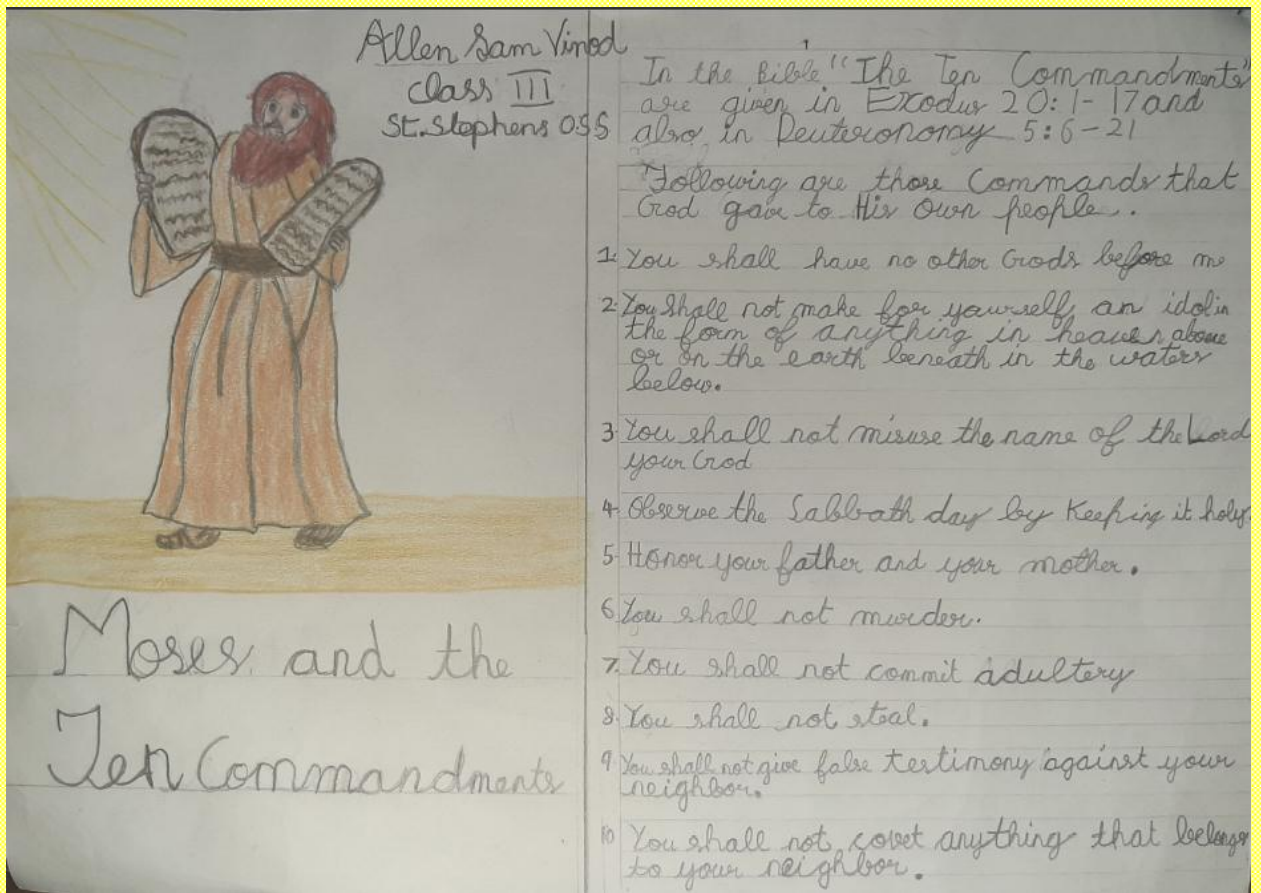 Allen Sam Vinod
Class III
St. Stephens O.S.S
Moses and the
Ten Commandments
1
In the Bible "The Ten Commandments"
are given in Exodus 20:1-17 and
also in Deuteronomy 5:6-21
Following are those Commands that
God gave to His Own people..
1. You shall have no other Gods before me
2. You shall not make for yourself an idol in
the form of anything in heaven above
or on the earth beneath in the waters
below.
3. You shall not misuse the name of the Lord
your God
4. Observe the Sabbath day by Keeping it holy.
5. Honor your father and your mother.
6. You shall not murder.
7. You shall not commit adultery
8. You shall not steal.
9 You shall not give false testimony against your
neighbor.
10 You shall not covet anything that belongs
to your neighbor.